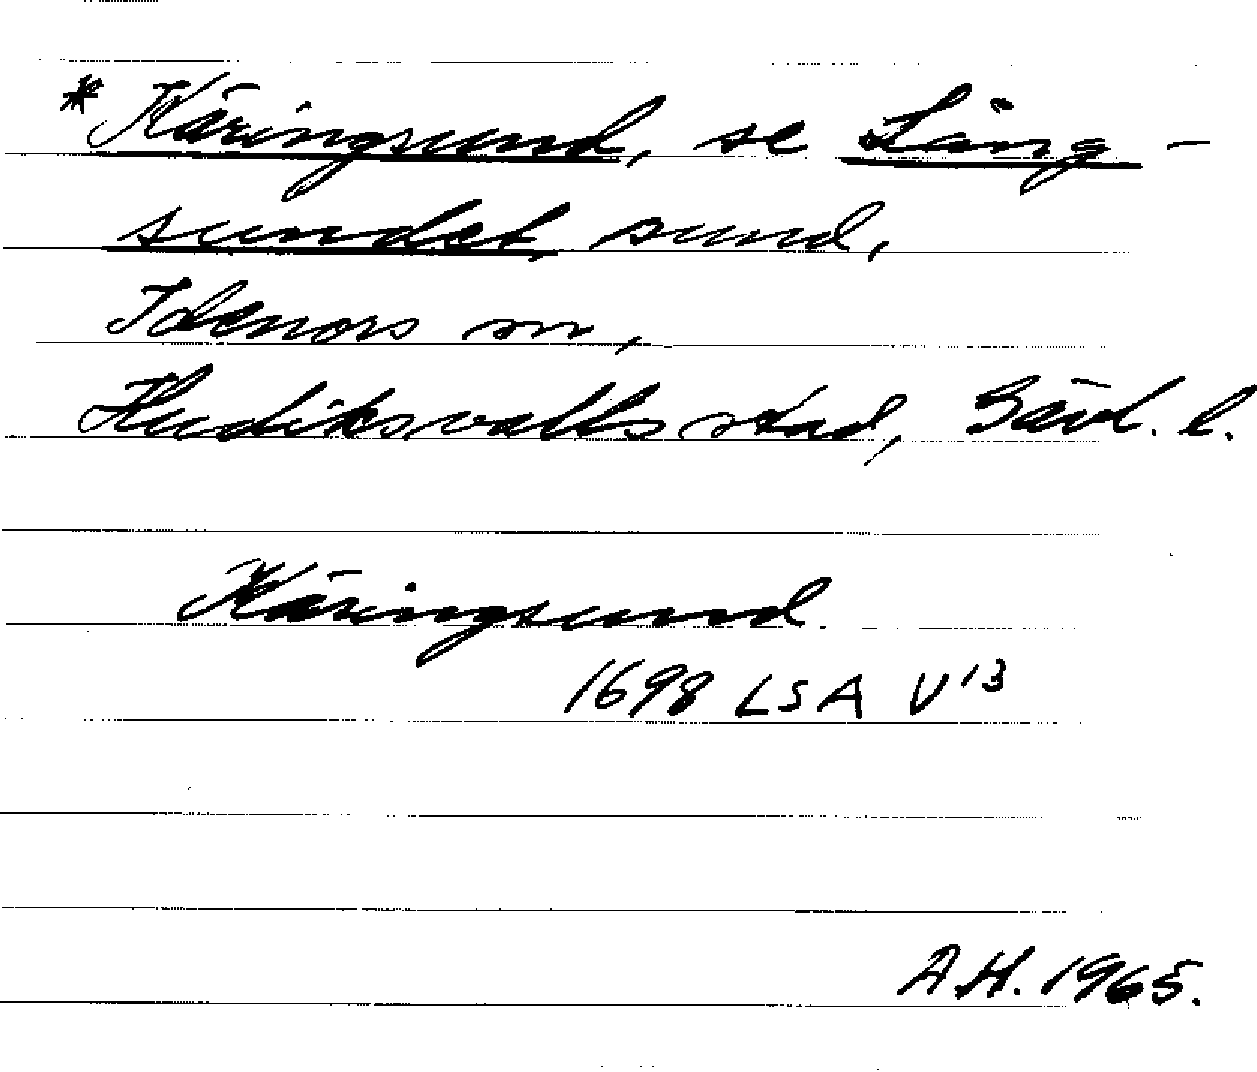 *Käringsund, se Lång-
sundet, sund,
Idenors sn,
Hudiksvalls stad, Gävl. l.
Käringsund
1698 LSA V13
A.H. 1965.